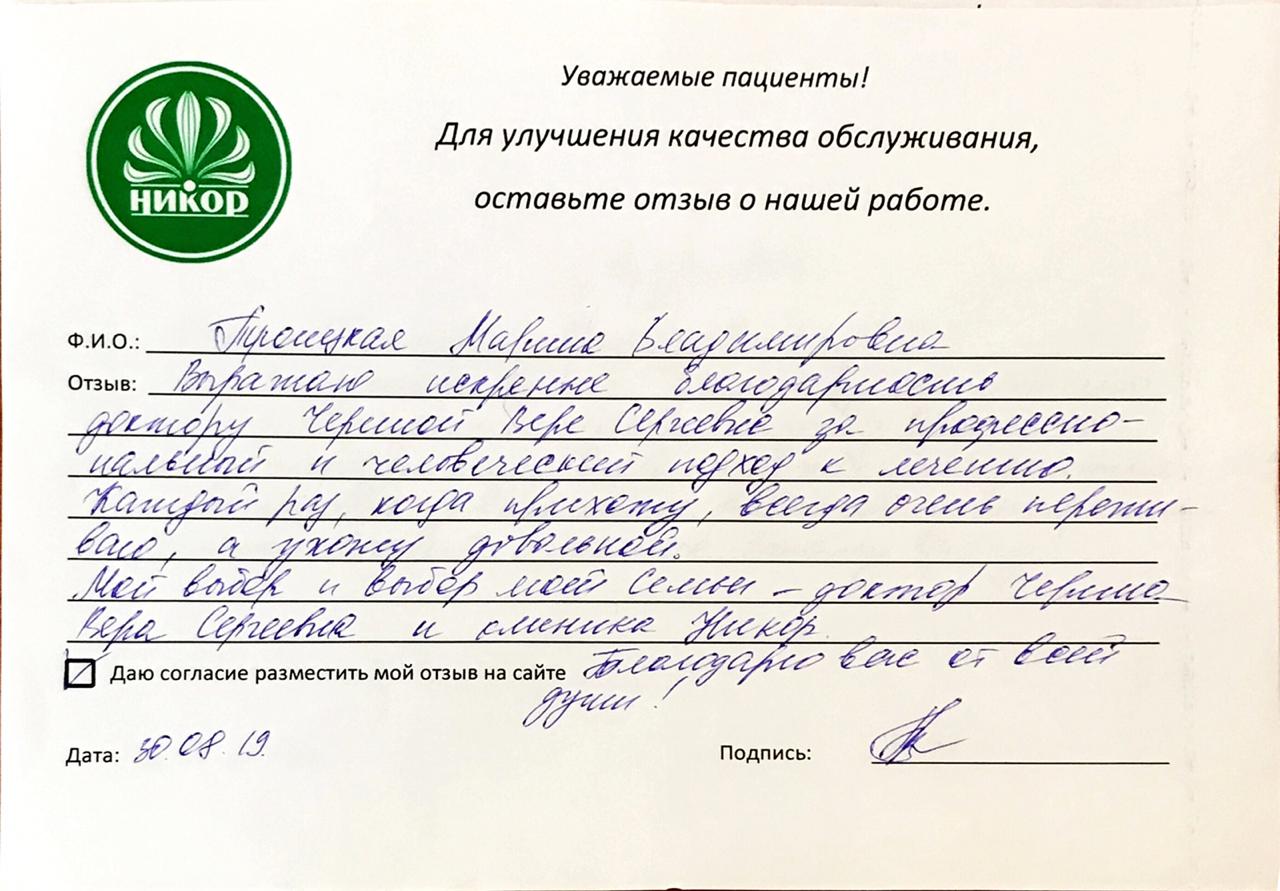 НИКОР
Уважаемые пациенты!
Для улучшения качества обслуживания,
оставьте отзыв о нашей работе.
Ф.И.О.: Троицкая Марина Владимировна
Отзыв: Выражаю искренне благодарность
доктору Вере Сергеевне за профессио-
нальный и человеческий подход к лечению.
Каждый раз, когда прихожу, всегда очень пережи-
ваю, а ухожу довольной.
Мой выбор и выбор моей семьи – доктор
Вера Сергеевна и клиника Никор.
Даю согласие разместить мой отзыв на сайте Благодарю вас от всей
души!
Дата: 30.08.19.
Подпись: